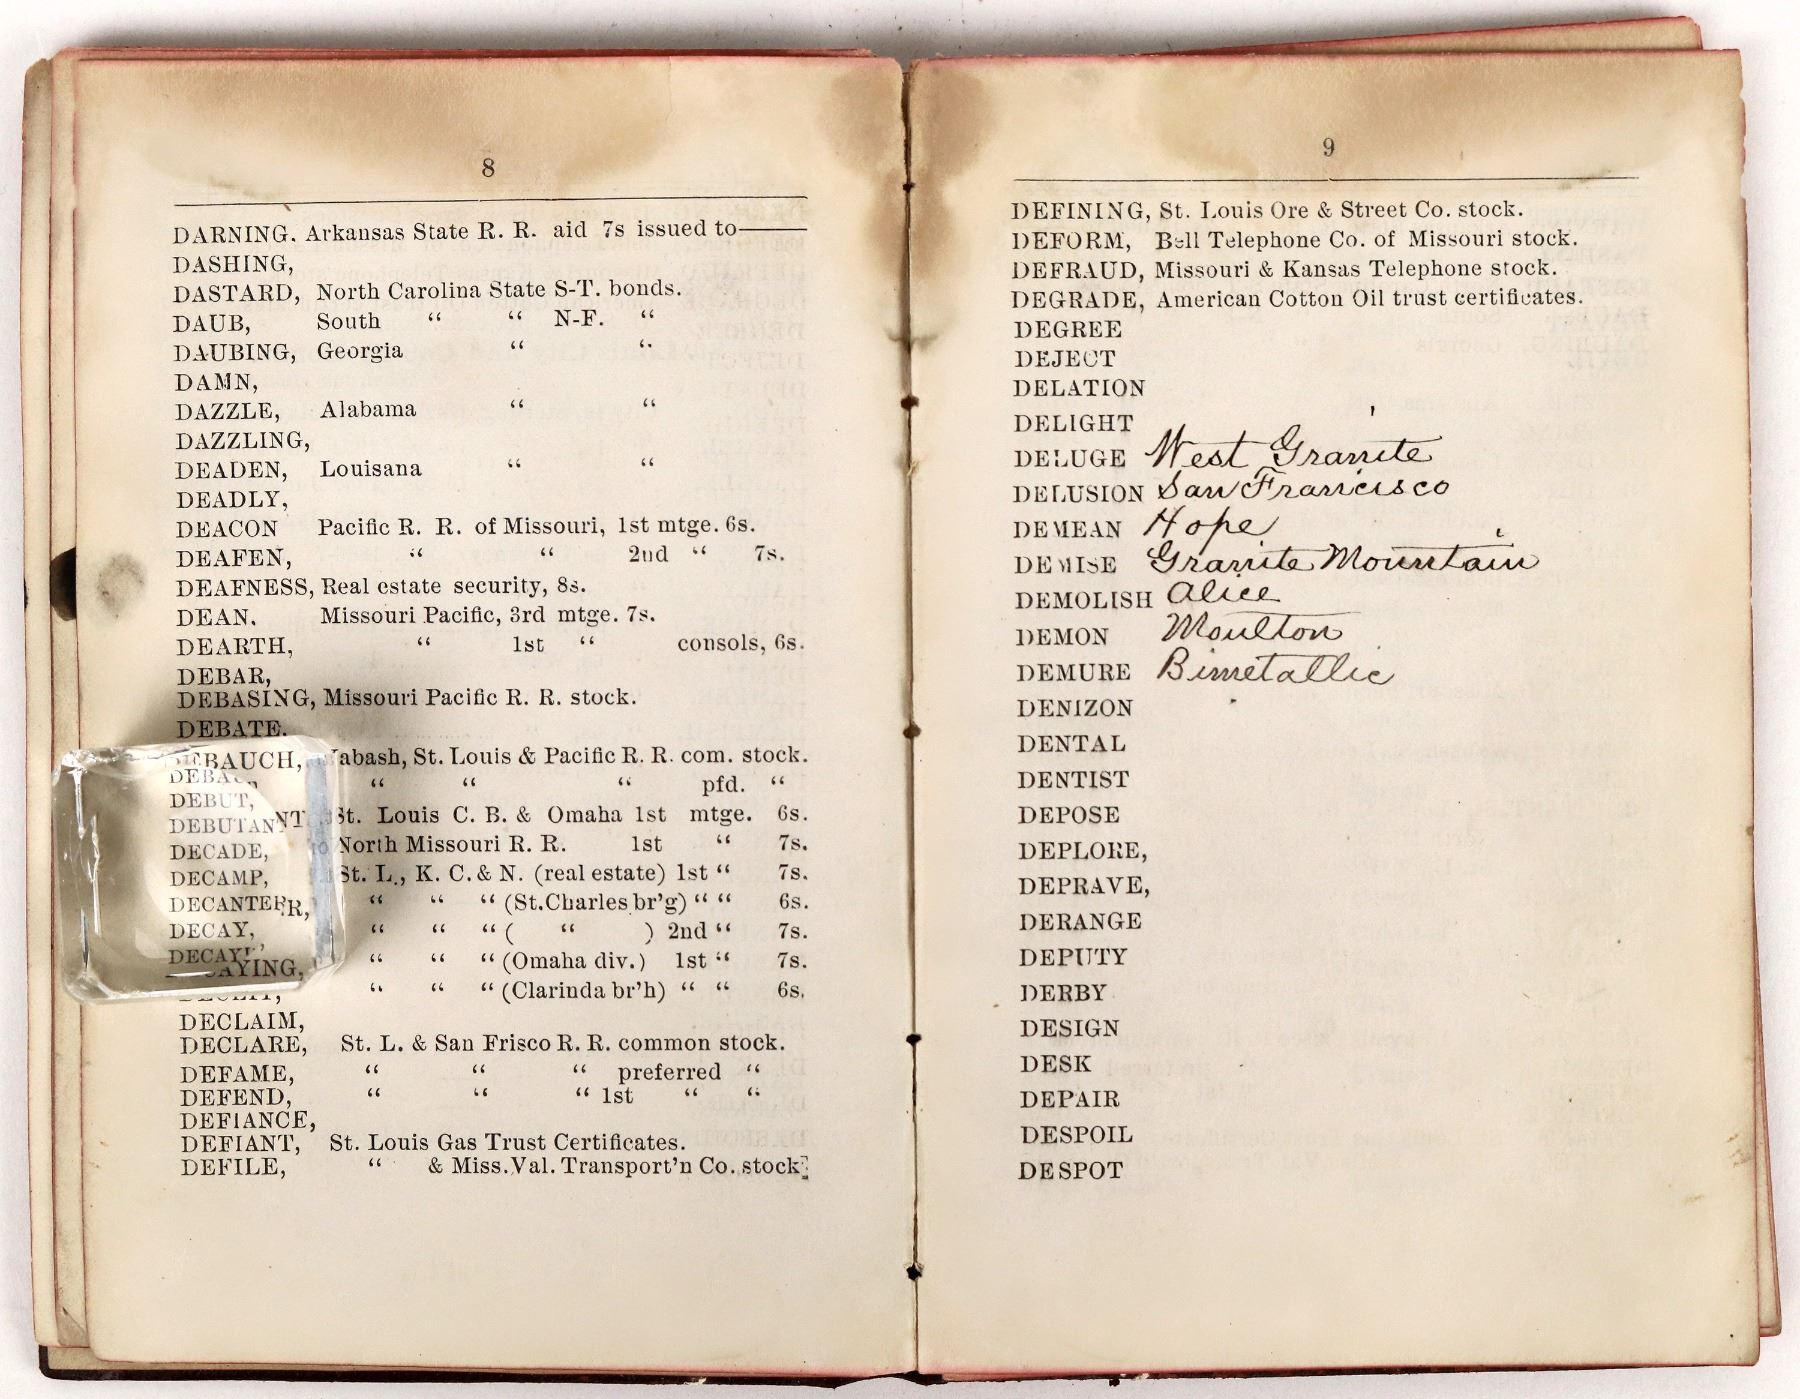 8
DARNING. Arkansas State R. R. aid 7s issued to———
DASHING,
DASTARD, North Carolina State S-T. bonds.
DAUB, South “ “ N-F. “
DAUBING, Georgia “ “
DAMN,
DAZZLE, Alabama “ “
DAZZLING,
DEADEN, Louisana “ “
DEADLY,
DEACON Pacific R. R. of Missouri, 1st mtge. 6s.
DEAFEN, “ “ 2nd “ 7s.
DEAFNESS, Real estate security, 8s.
DEAN. Missouri Pacific, 3rd mtge. 7s.
DEARTH, “ 1st “ consols, 6s.
DEBAR,
DEBASING, Missouri Pacific R. R. stock.
DEBATE.
DEBAUCH, Wabash, St. Louis & Pacific R. R. com. stock.
DEBUT, “ “ “ pfd. “
DEBUTANT St. Louis C. B. & Omaha 1st mtge. 6s.
DECADE, North Missouri R. R. 1st “ 7s.
DECAMP, St. L., K. C. & N. (real estate) 1st “ 7s.
DECANTER, “ “ “ (St. Charles br'g) “ “ 6s.
DECAY, “ “ “ ( “ ) 2nd “ 7s.
DECAYING, “ “ “ (Omaha div.) 1st “ 7s.
DECEIT, “ “ “ (Clarinda br'h) “ “ 6s.
DECLAIM,
DECLARE, St. L. & San Frisco R. R. common stock.
DEFAME, “ “ “ preferred “
DEFEND, “ “ “ 1st “ “
DEFIANCE,
DEFIANT, St. Louis Gas Trust Certificates.
DEFILE, “ & Miss. Val. Transport'n Co. stock
9
DEFINING, St. Louis Ore & Street Co. stock.
DEFORM, Bell Telephone Co. of Missouri stock.
DEFRAUD, Missouri & Kansas Telephone stock.
DEGRADE, American Cotton Oil trust certificates.
DEGREE
DEJECT
DELATION
DELIGHT
DELUGE West Granite
DELUSION San Francisco
DEMEAN Hope
DEMISE Granite Mountain
DEMOLISH Alice
DEMON Moulton
DEMURE Bimetallic
DENIZON
DENTAL
DENTIST
DEPOSE
DEPLORE,
DEPRAVE,
DERANGE
DEPUTY
DERBY
DESIGN
DESK
DEPAIR
DESPOIL
DESPOT